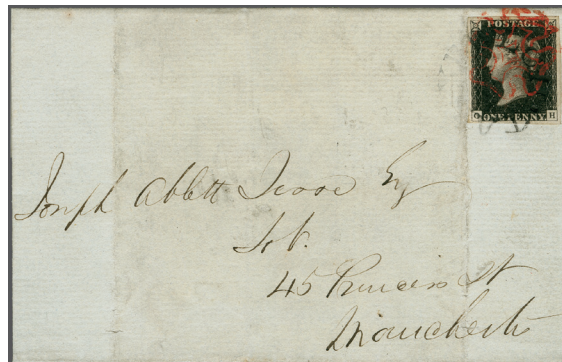 POSTAGE
ONE PENNY
H
Joseph Ablett Jesse Esq
45 Princess St
Manchester